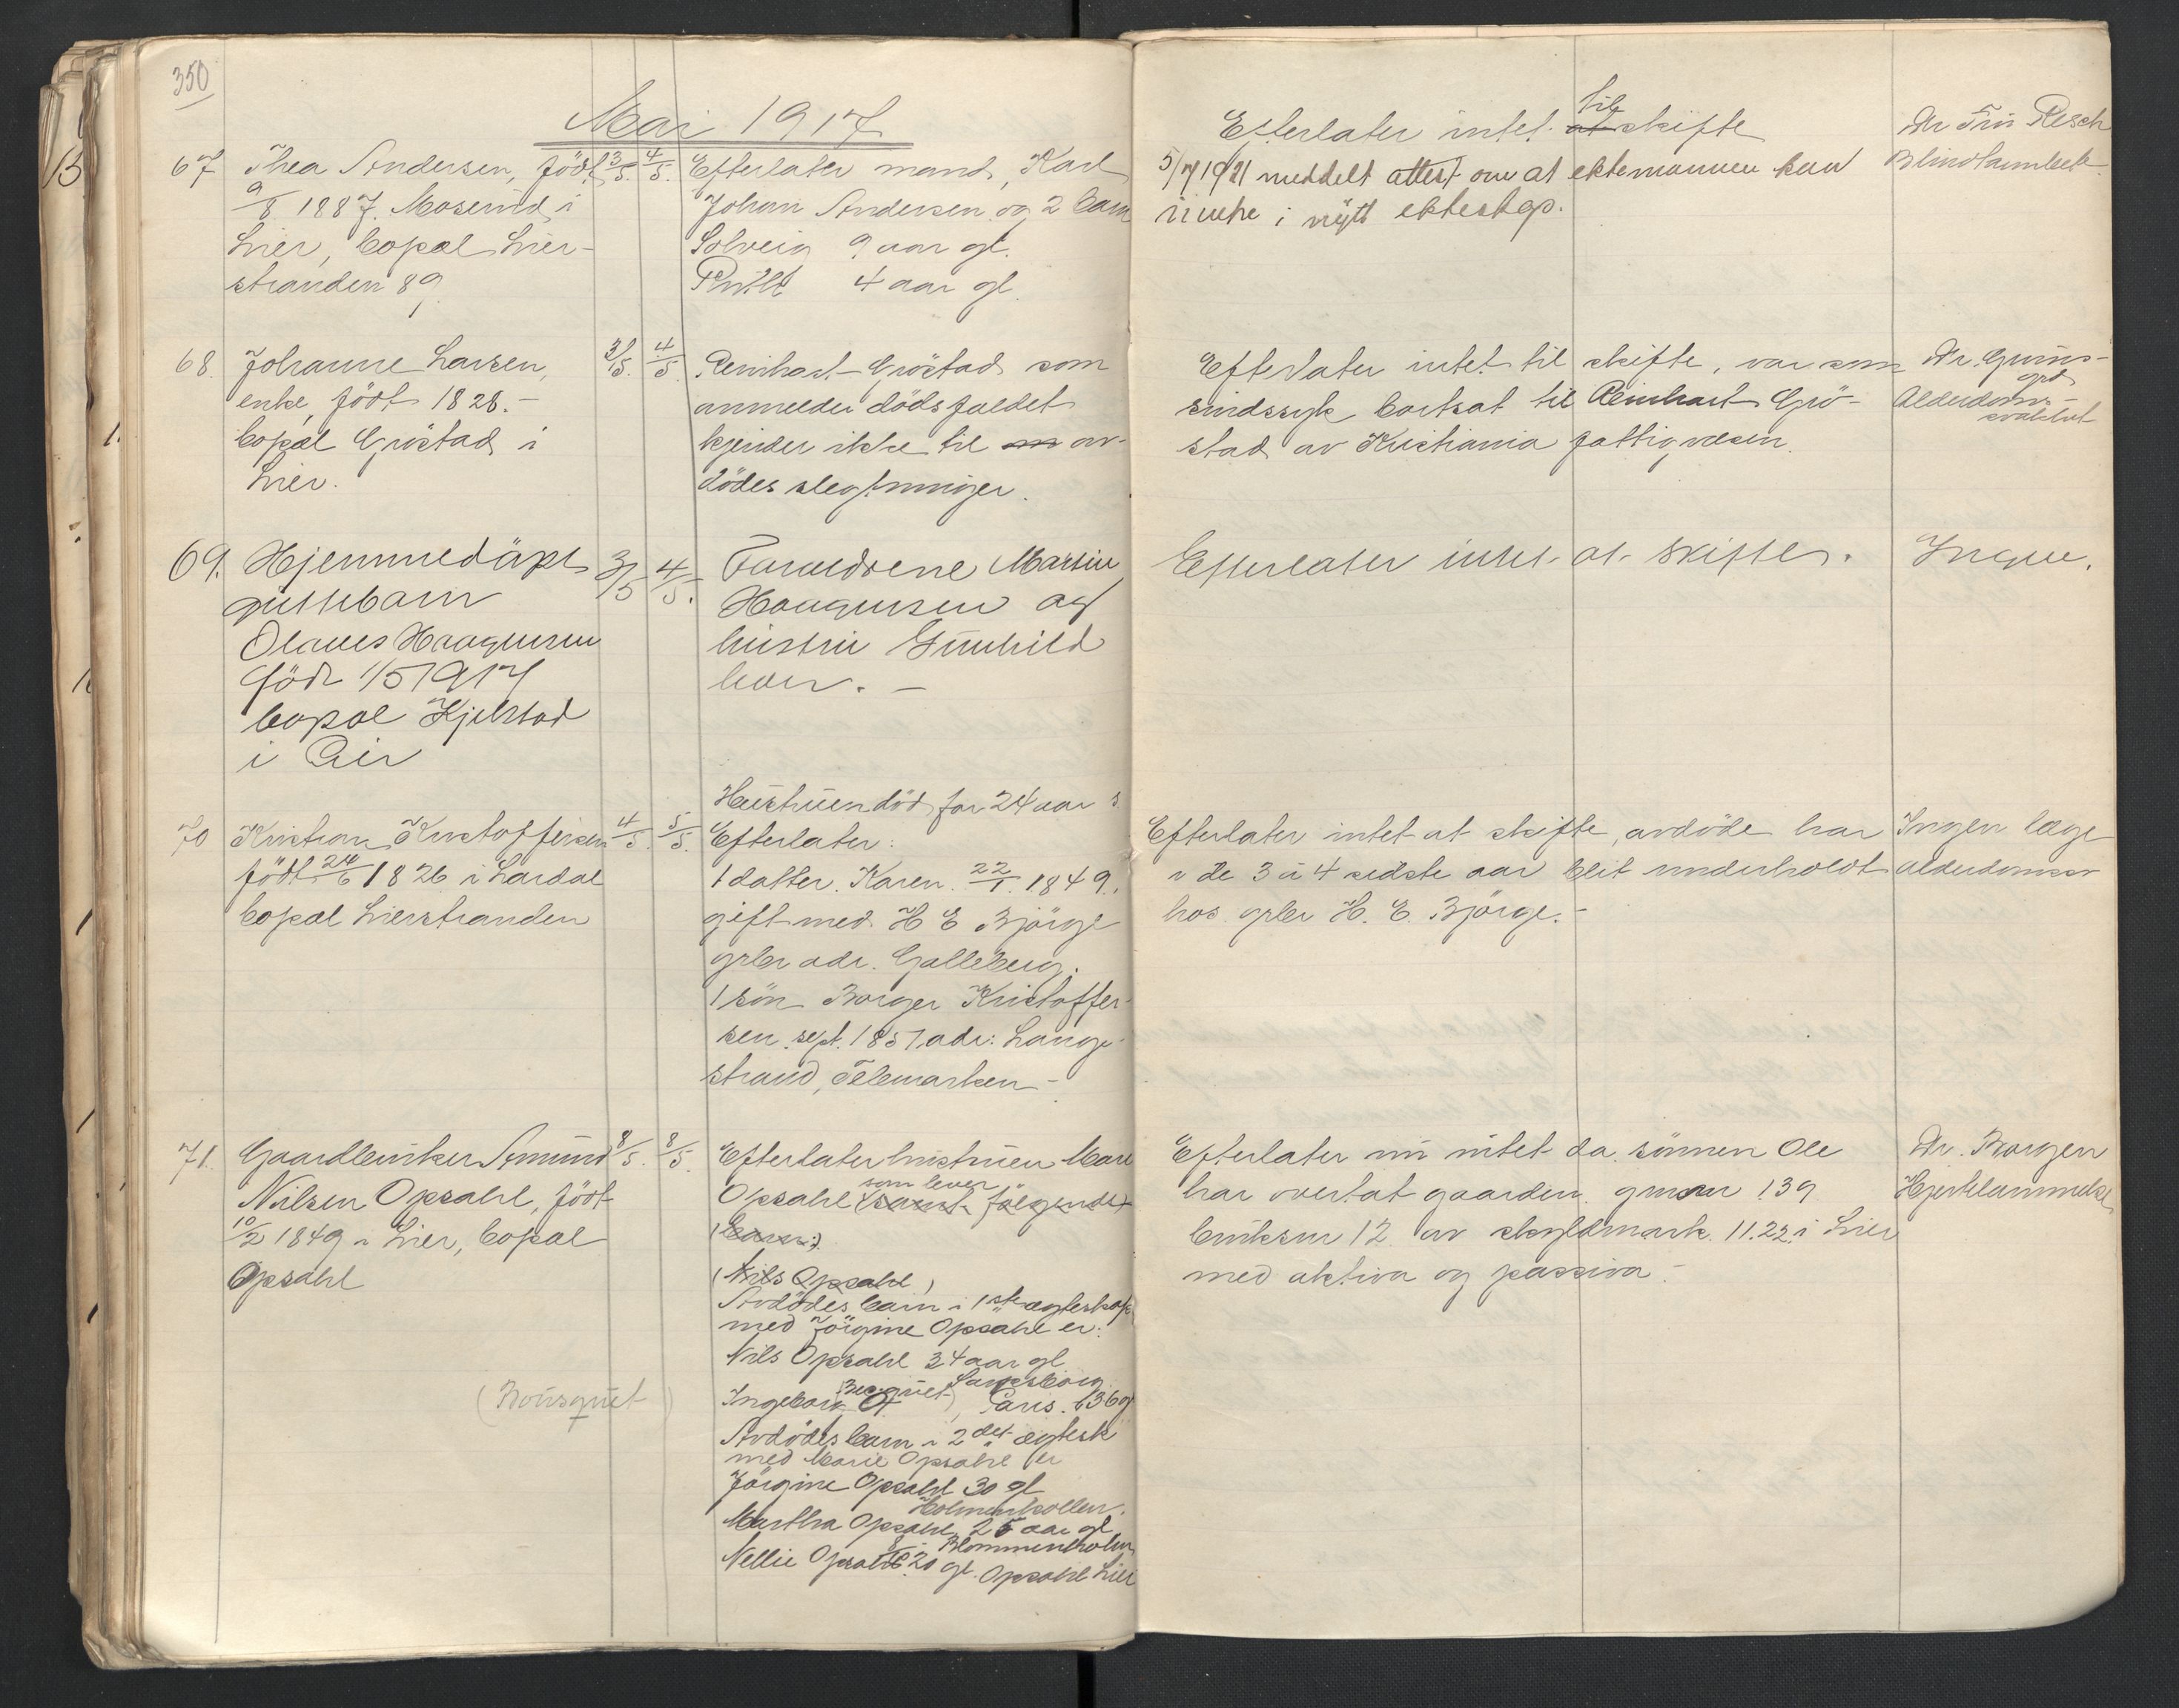 350
Mai 1917
67 Thea Andersen, födt 3/5 4/5
9/8 1887. Moserud i
Lier, bopæl Lier-
stranden 89
Efterlater mand, Karl
Johan Andersen og 2 barn
Solveig 9 aar gl.
4 aar gl.
Efterlater intet at til skifte
5/7 1921 meddelt attest om at ektemannen kan
i nytt ekteskap.
Dr Resch
Blindtarmbet.
68. Johanne Larsen, 3/5. 4/5
enke, födt 1828.-
bopæl Gröstad i
Lier.
Reinhart Gröstad som
anmelder dödsfaldet
kjender ikke til av-
dödes slegtninger.
Efterlater intet til skifte, var som
sindssyk bortsat til Reinhart Grö-
stad av Kristiania fattigvæsen.
Dr. Grims-
grd
Alderdoms-
svakhet
69. Hjemmedöpt 3/5 4/5.
guttebarn
Olaves Haagensen
född 1/5 1917
bopæl Kjelstad
i Lier
Foreldrene Martin
Haagensen og
hustru Gunhild
lever. -
Efterlater intet at skifte.
Ingen.
70 Kristian Kristoffersen 4/5. 5/5.
födt 24/6 1826 i Lardal
bopæl Lierstranden
Hustruen död for 24 aar s
Efterlater:
1 datter. Karen 22/1. 1849.,
gift med H E Björge
grbr adr. Galleberg.
1 sön Borger Kristoffer-
sen. sept. 1857, adr: Lange-
strand, Telemarken -
Efterlater intet at skifte, avdöde har
i de 3 à 4 sidste aar blit underholdt
hos grbr H. E. Björge.-
Ingen læge
alderdomssv
71. Gaardbruker Amund 8/5. 8/5.
Nilsen Opsahl, födt
10/2 1849 i Lier, bopæl
Opsahl
Efterlater hustruen Mari
som lever
Opsahl (samt følgende
barn:)
(Nils Opsahl)
Avdödes barn i 1ste egteskap
med Jörgine Opsahl er:
Nils Opsahl 34 aar gl
Sarpsborg
(Bousquet)
Ingeborg , Paris. 36 gl
Avdödes barn i 2det egtesk
med Marie Opsahl er
Jörgine Opsahl 30 gl
Holmenkollen.
Martha Opsahl, 25 aar gl
Blommenholm
Nellie Opsahl 20 gl. Opsahl Lier
Efterlater nu intet da sönnen Ole
har overtat gaarden gmr 139
bruksnr 12 av skyldmark. 11.22 i Lier
med aktiva og passiva -
Dr. Borgen
Hjertelammelse